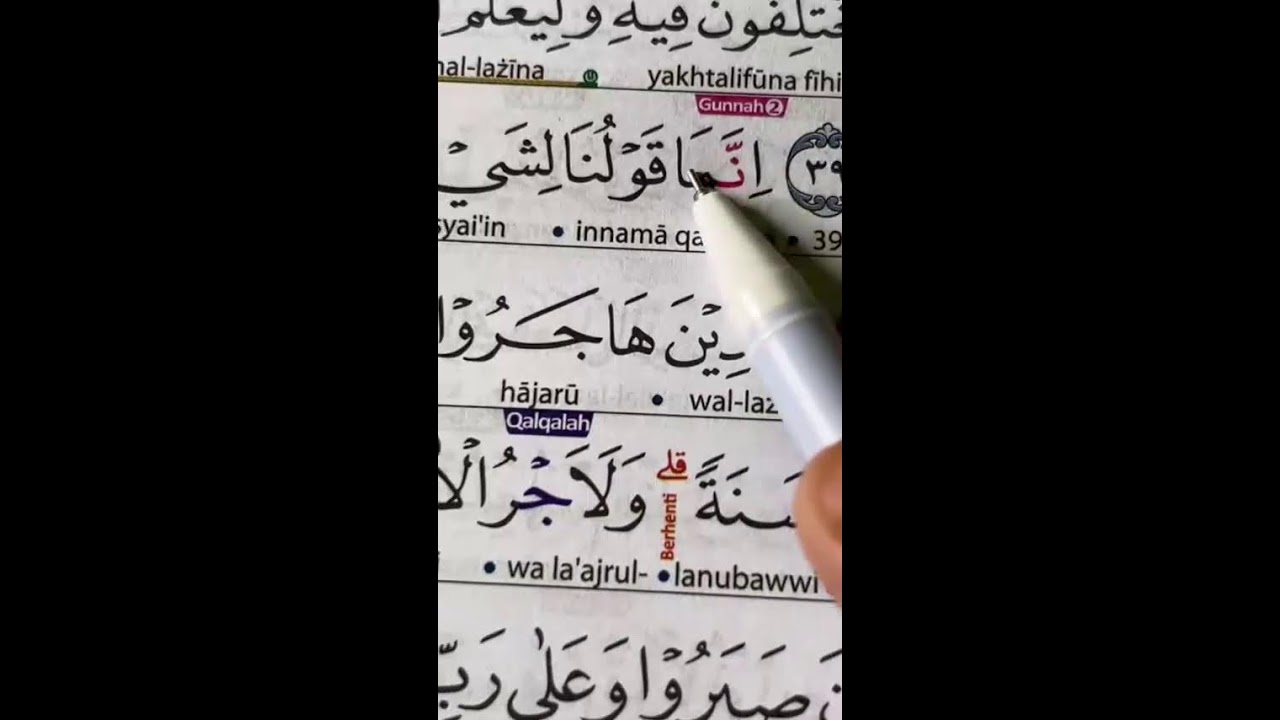 يَخْتَلِفُوْنَ فِيْهِ وَلِيَعْلَمَ
nal-lażīna yakhtalifūna fīhi
Gunnah 2
٣٩ اِنَّمَا قَوْلُنَا لِشَيْ
syai'in • innamā • 39
هَاجَرُوْا
hājarū • wal-laż
Qalqalah
سَنَةً ۗقلى وَلَاَجْرُ الْاٰ
Berhenti
• wa la'ajrul- • lanubawwi
صَبَرُوْا وَعَلٰى رَبِّ